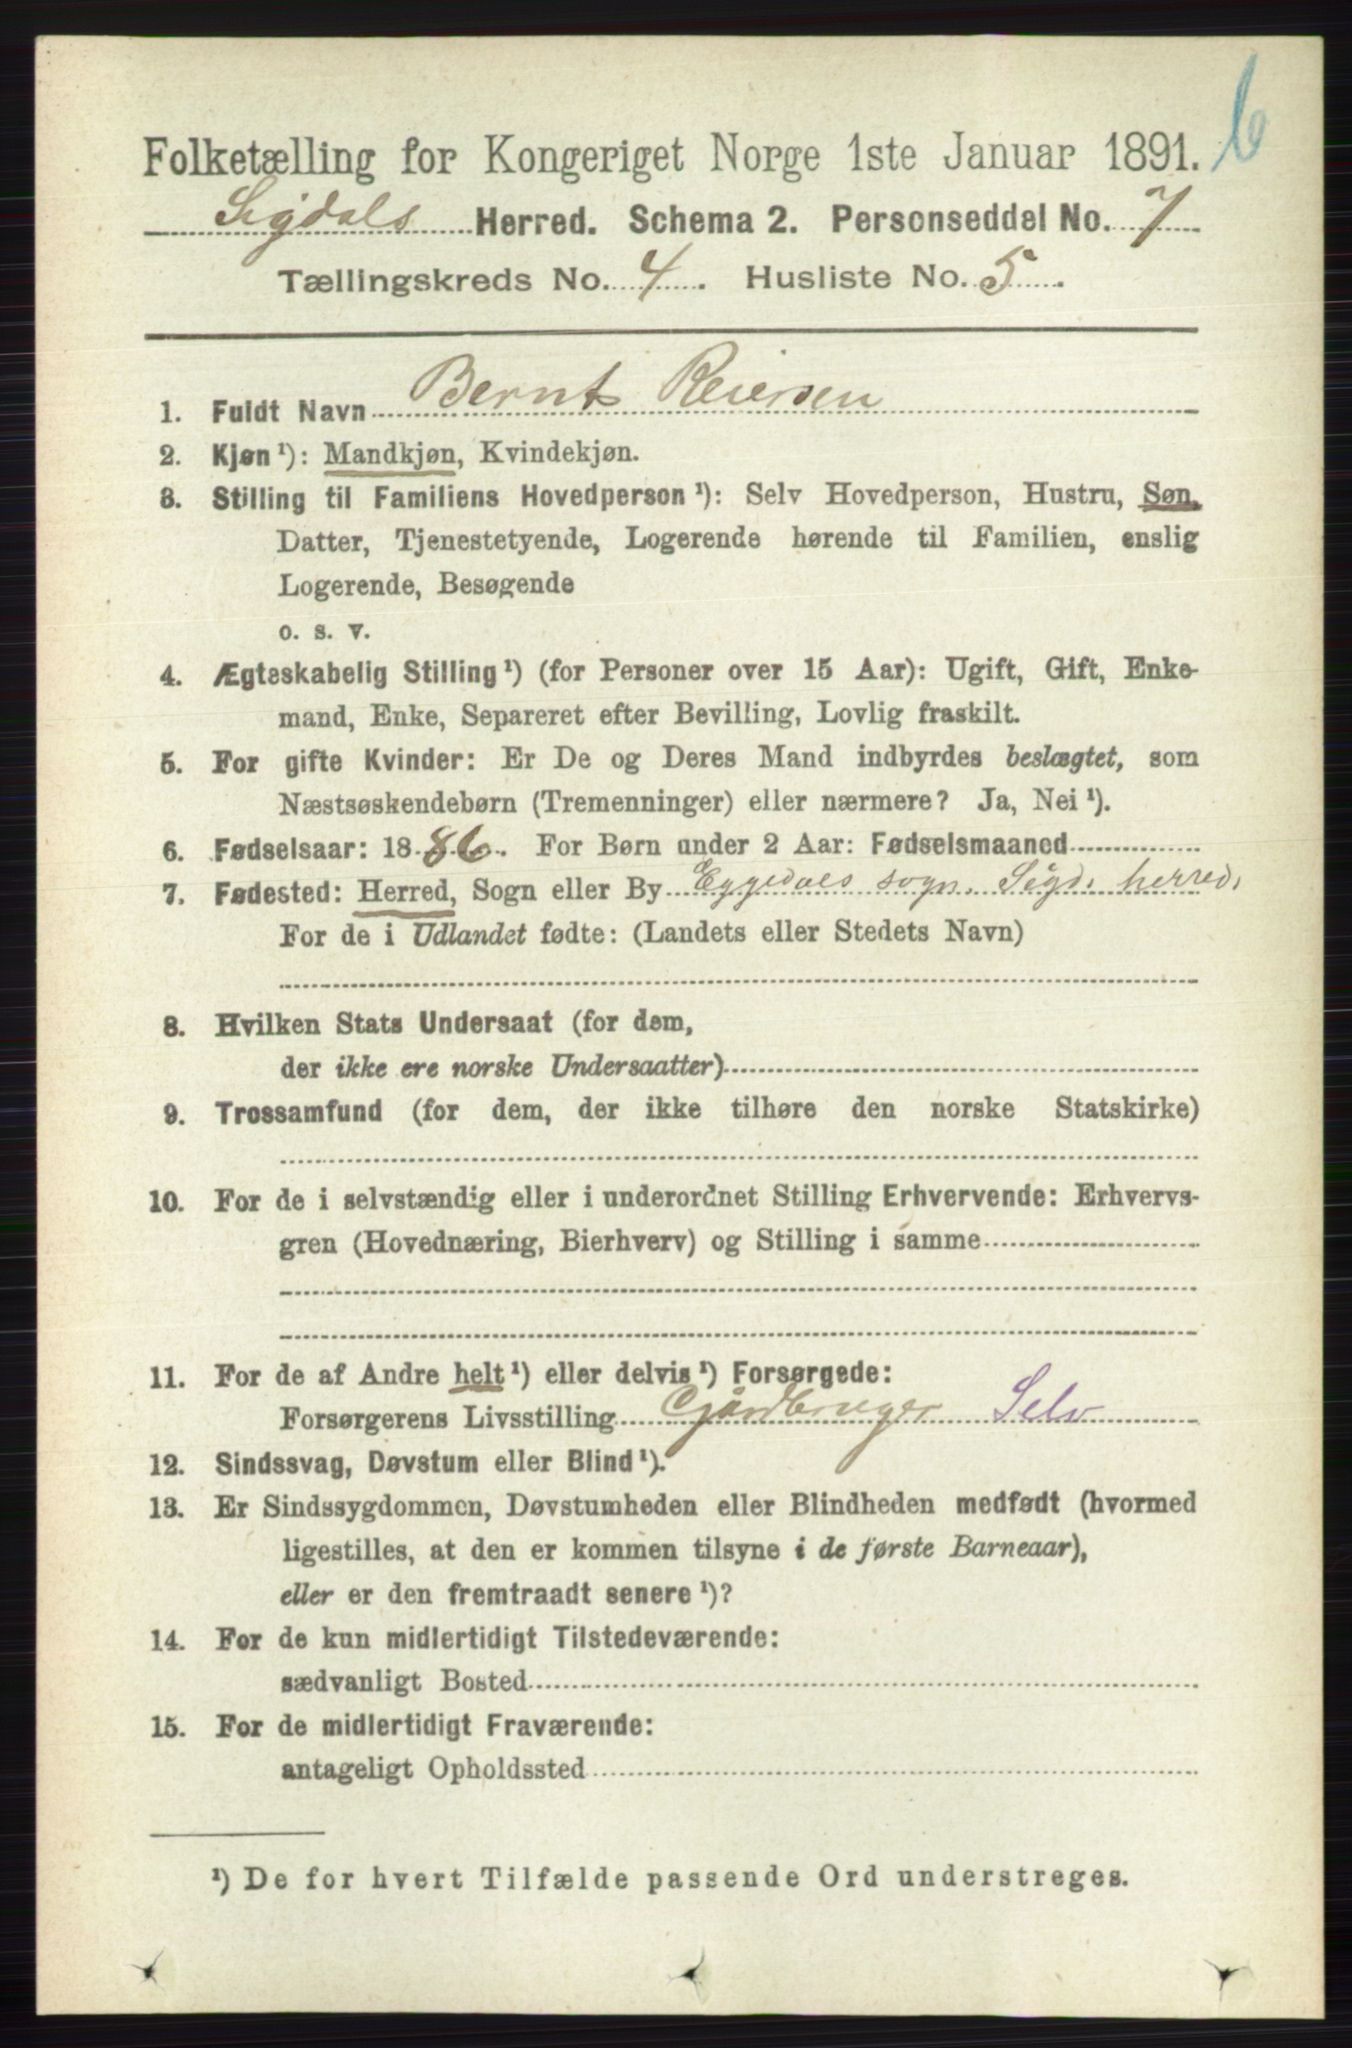 6
Folketælling for Kongeriget Norge 1ste Januar 1891.
Sigdals Herred. Schema 2. Personseddel No. 7
Tællingskreds No. 4. Husliste No. 5.
1. Fuldt Navn Bernt Reiersen
2. Kjøn ¹): Mandkjøn, Kvindekjøn.
3. Stilling til Familiens Hovedperson ¹): Selv Hovedperson, Hustru, Søn,
Datter, Tjenestetyende, Logerende hørende til Familien, enslig
Logerende, Besøgende
o. s. v.
4. Ægteskabelig Stilling ¹) (for Personer over 15 Aar): Ugift, Gift, Enke-
mand, Enke, Separeret efter Bevilling, Lovlig fraskilt.
5. For gifte Kvinder: Er De og Deres Mand indbyrdes beslægtet, som
Næstsøskendebørn (Tremenninger) eller nærmere? Ja, Nei ¹).
6. Fødselsaar: 1886. For Børn under 2 Aar: Fødselsmaaned
7. Fødested: Herred, Sogn eller By Eggedals sogn. Sigd. herred.
For de i Udlandet fødte: (Landets eller Stedets Navn)
8. Hvilken Stats Undersaat (for dem,
der ikke ere norske Undersaatter)
9. Trossamfund (for dem, der ikke tilhøre den norske Statskirke)
10. For de i selvstændig eller i underordnet Stilling Erhvervende: Erhvervs-
gren (Hovednæring, Bierhverv) og Stilling i samme
11. For de af Andre helt ¹) eller delvis ¹) Forsørgede:
Forsørgerens Livsstilling Gjårdbruger Selv
12. Sindssvag, Døvstum eller Blind ¹).
13. Er Sindssygdommen, Døvstumheden eller Blindheden medfødt (hvormed
ligestilles, at den er kommen tilsyne i de første Barneaar),
eller er den fremtraadt senere ¹)?
14. For de kun midlertidigt Tilstedeværende:
sædvanligt Bosted
15. For de midlertidigt Fraværende:
antageligt Opholdssted
¹) De for hvert Tilfælde passende Ord understreges.